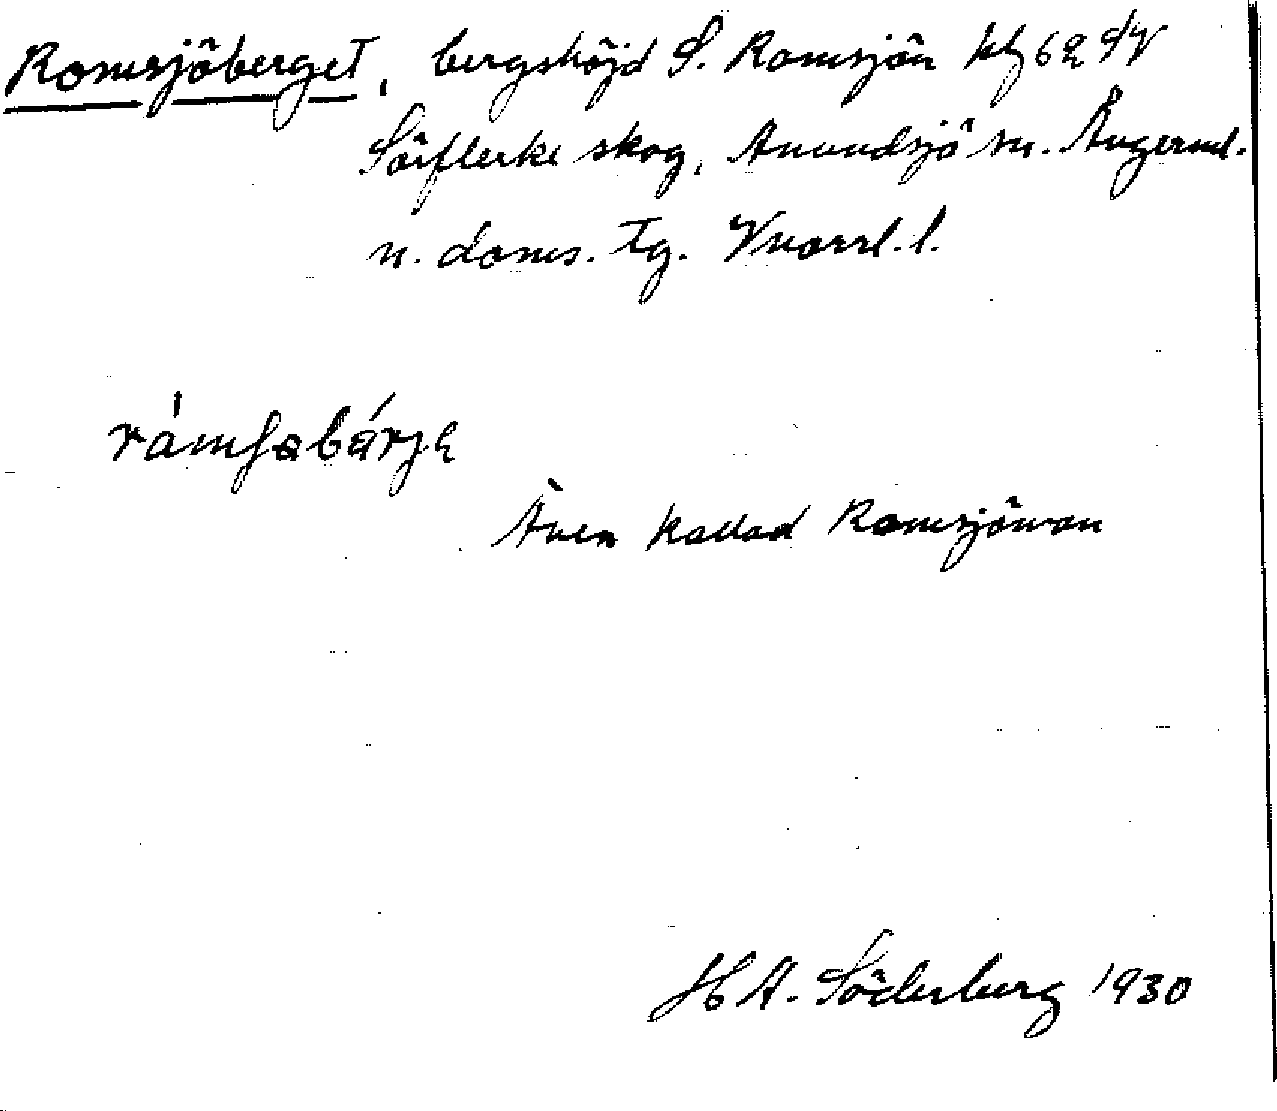 Romsjöberget, bergshöjd S. Romsjön kbl 62 SV
Sörflerke skog, Anundsjö sn. Ångerml.
n. doms. tg. Vnorrl. l.
råmʃəbárje
Även kallad Romsjöwan
H A. Söderberg 1930